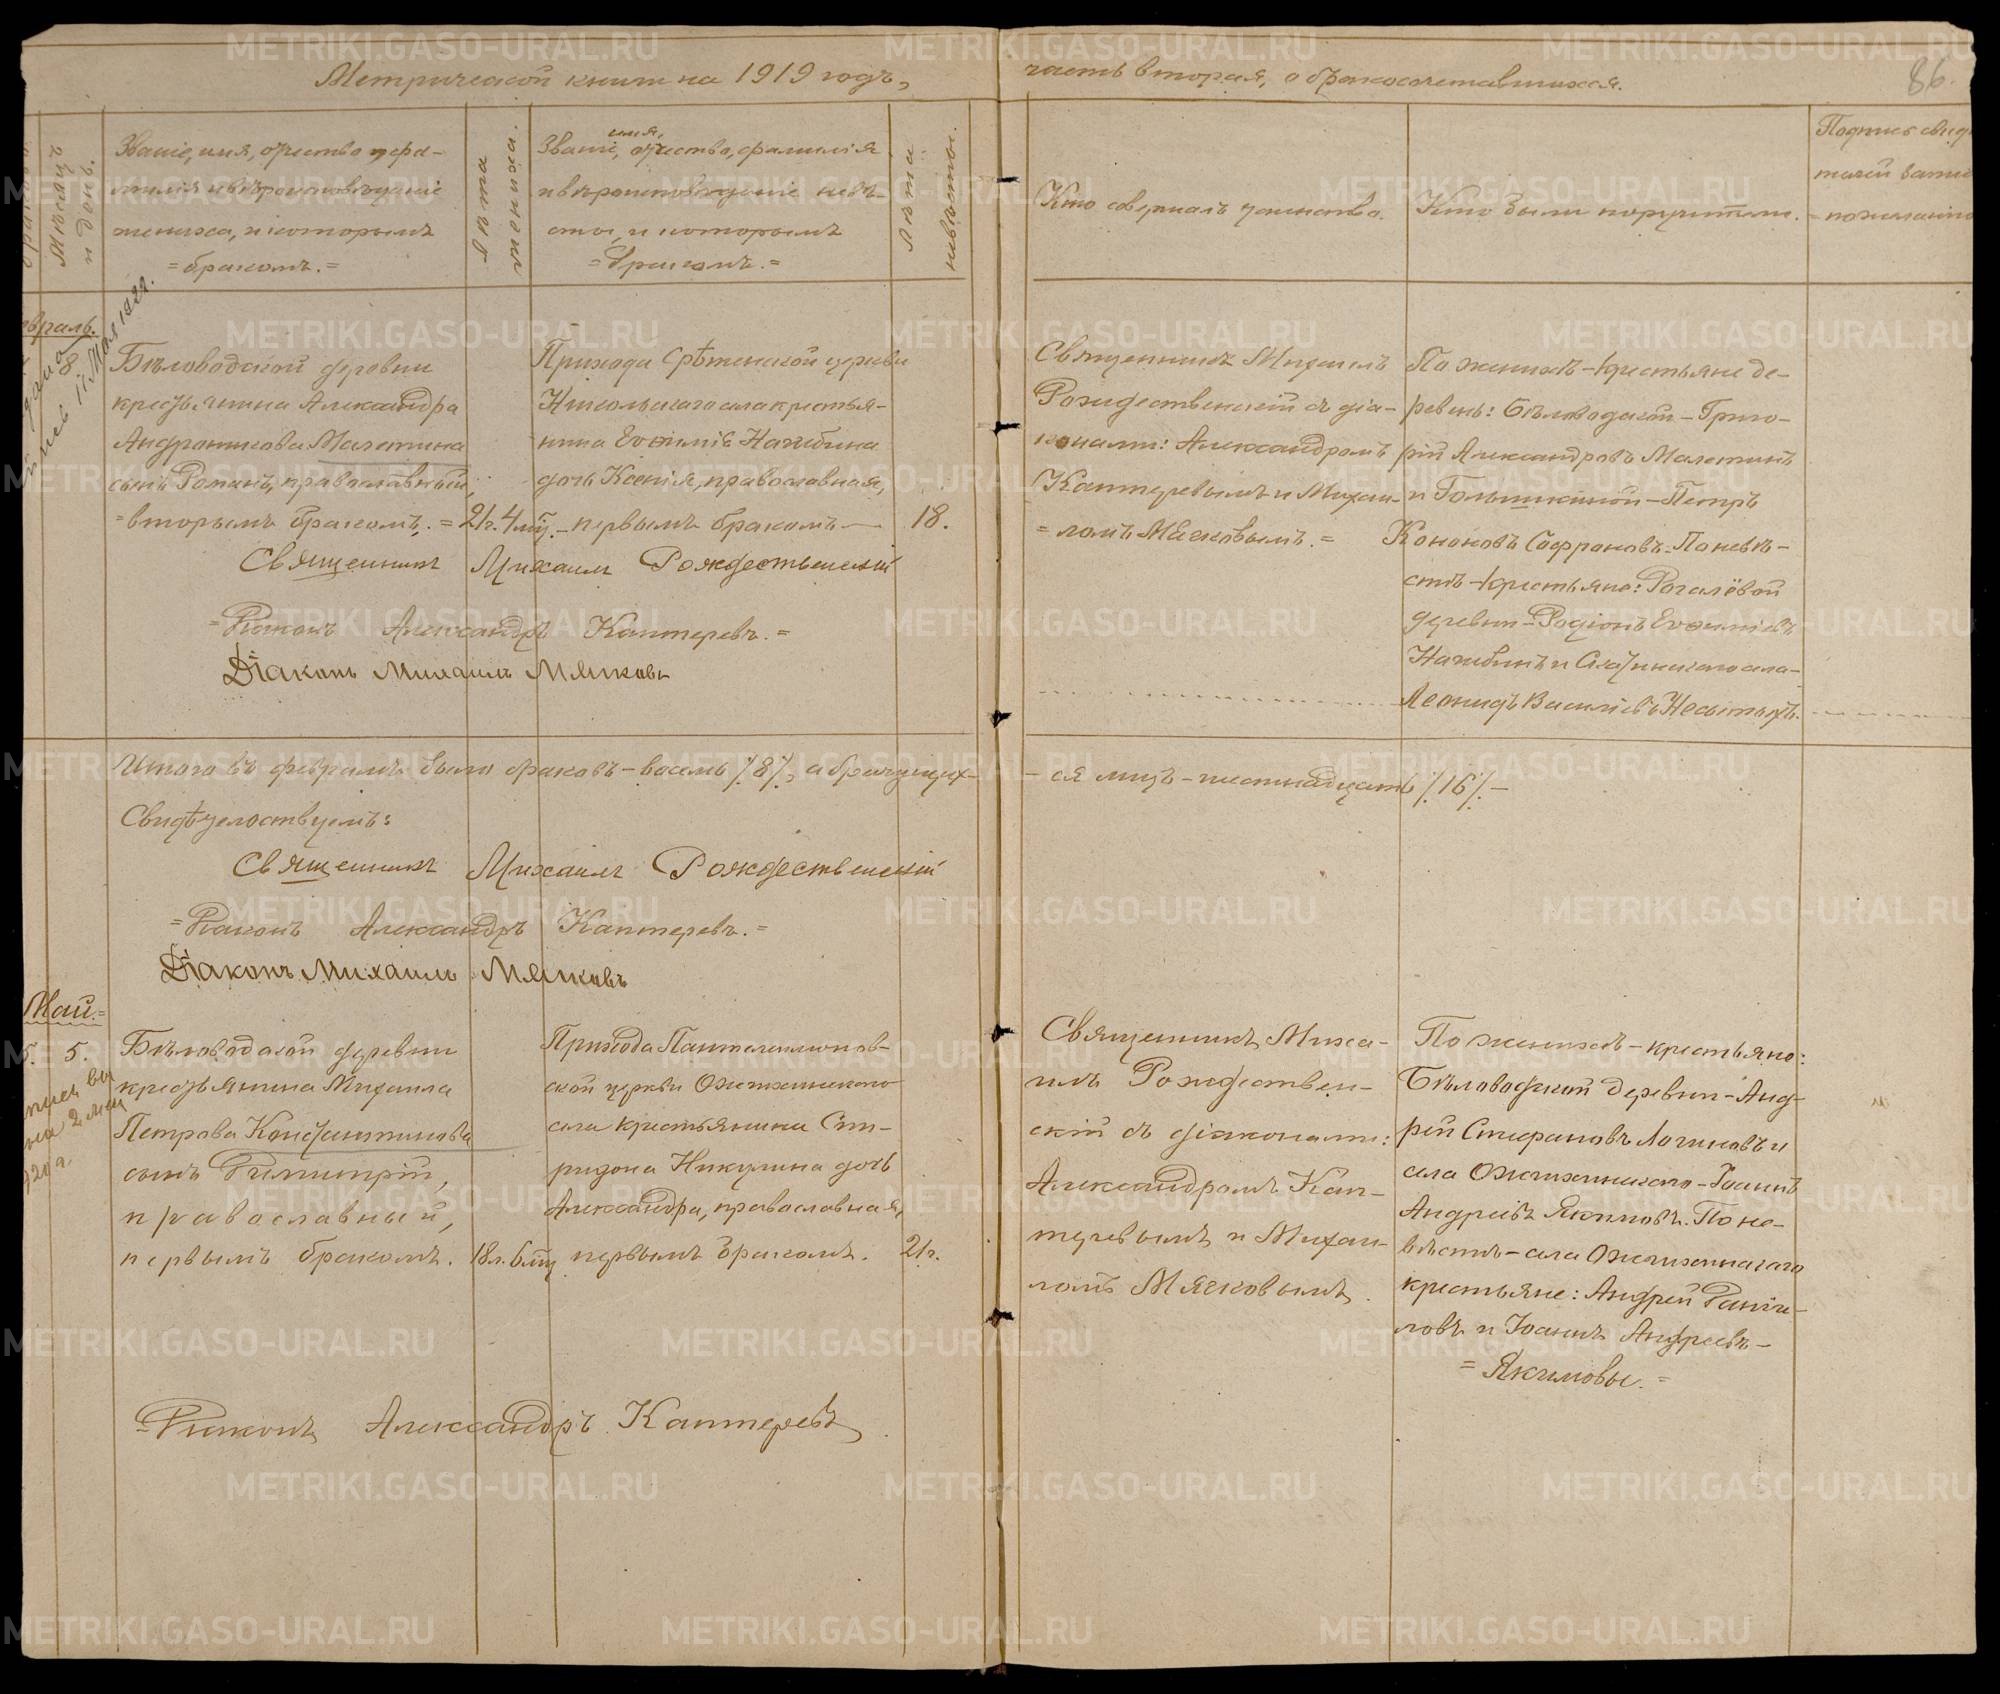 Метрической книги на 1919 годъ,
часть вторая, о бракосочетавшихся.
86.
Мѣсяцъ и день.
Званіе, имя, отчество и фа-
милія и вѣроисповѣданіе
жениха, и которымъ
= бракомъ. =
Лѣта жениха.
Званіе, имя, отчество, фамилія
и вѣроисповѣданіе невѣ-
сты, и которымъ
= бракомъ. =
Лѣта невѣсты.
Кто совершалъ таинство.
Кто были поручители.
Подпись свидѣ
телей записи
= по желанію
евраль.
8
11 Мая 1922г.
Бѣловодской деревни
крестьянина Александра
Андроникова Малетина
сынъ Романъ, православный,
= вторымъ бракомъ. =
21г. 4 мѣ.
Прихода Срѣтенской церкви
Никольскаго села крестья-
нина Евѳимія Нагибина
дочь Ксенія, православная,
– первымъ бракомъ —
18.
Священникъ Михаилъ
Рождественскій съ діа-
конами: Александромъ
Каптеревымъ и Михаи-
= ломъ Мячковымъ. =
По женихѣ – крестьяне де-
ревень: Бѣловодской – Григо-
рій Александровъ Малетинъ
и Голышкиной – Петръ
Кононовъ Софроновъ. По невѣ-
стѣ – крестьяне: Рогалёвой
деревни – Родіонъ Евѳиміевъ
Нагибинъ и села –
Леонидъ Василіевъ Несытыхъ.
Священникъ Михаилъ Рождественскій
= Діаконъ Александръ Каптеревъ. =
Діаконъ Михаилъ Мячковъ
Итого въ февралѣ было браковъ – восемь /8/, а брачущих-
– ся лицъ – шестнадцать /16/. –
Свидѣтельствуемъ:
Священникъ Михаилъ Рождественскій
= Діаконъ Александръ Каптеревъ. =
Діаконъ Михаилъ Мячковъ
Май. =
5.
Бѣловодской деревни
крестьянина Михаила
Петрова Константинова
сынъ Димитрій,
православный,
первымъ бракомъ.
18л. 6 мѣ
Прихода Пантелеимонов-
ской церкви Ожегинскаго
села крестьянина Спи-
ридона Никулина дочь
Александра, православная,
первымъ бракомъ.
21г.
Священникъ Миха-
илъ Рождествен-
скій съ діаконами:
Александромъ Кап-
теревымъ и Михаи-
ломъ Мячковымъ.
По женихѣ – крестьяне:
Бѣловодской деревни – Анд-
рей Стефановъ Логиновъ и
села – Іоаннъ
Андреевъ Якимовъ. По не-
вѣстѣ – села
крестьяне: Андрей Даніи-
ловъ и Іоаннъ Андреевъ –
= Якимовы. =
= Діаконъ Александръ Каптеревъ